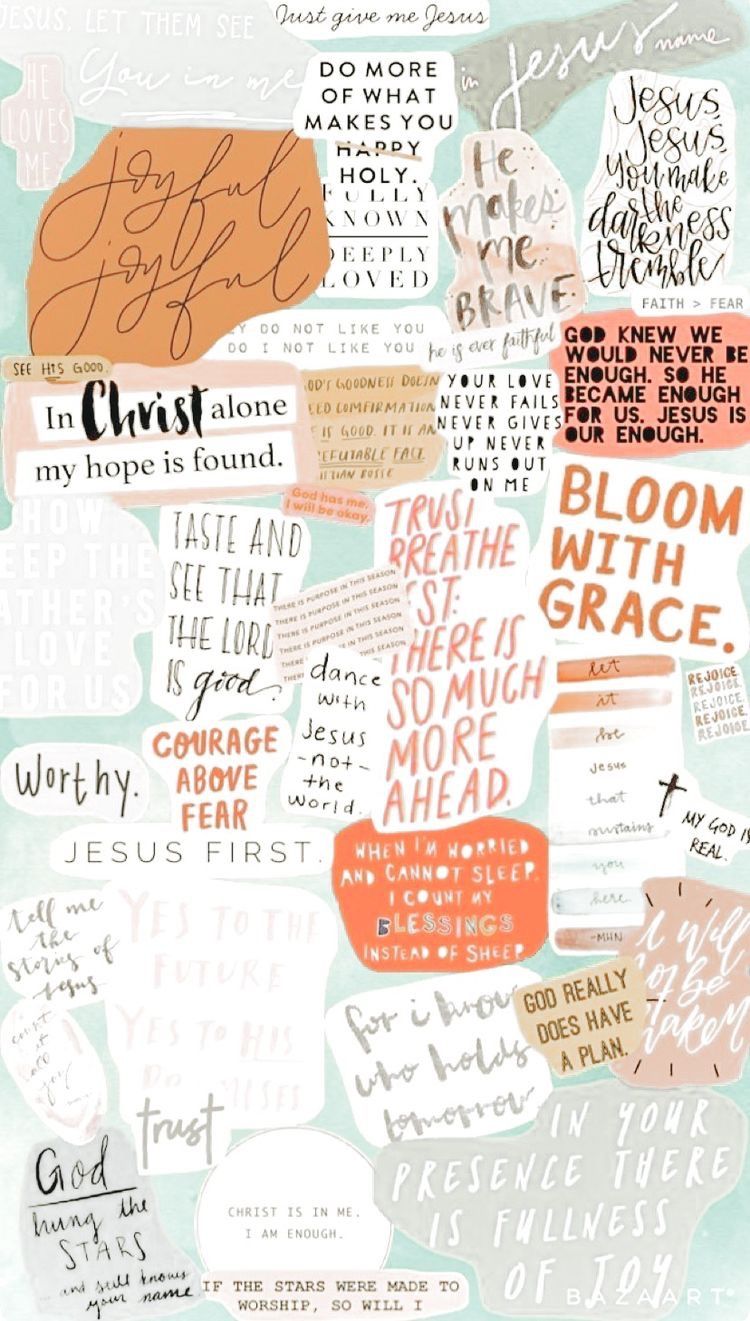 JESUS, LET THEM SEE
You in me
Just give me Jesus
in Jesus name
HE
LOVES
ME
DO MORE
OF WHAT
MAKES YOU
HAPPY
HOLY.
FULLY
KNOWN
DEEPLY
LOVED
joyful
joyful
He
makes
me
BRAVE.
Jesus,
Jesus,
you make
the
darkness
tremble
FAITH > FEAR
Y DO NOT LIKE YOU
DO I NOT LIKE YOU
he is ever faithful
GOD KNEW WE
WOULD NEVER BE
ENOUGH. SO HE
BECAME ENOUGH
FOR US. JESUS IS
OUR ENOUGH.
SEE HIS GOOD.
In Christ alone
my hope is found.
OD'S GOODNESS DOESN
ED COMFIRMATION
IS GOOD. IT IS AN
EFUTABLE FACT.
YOUR LOVE
NEVER FAILS
NEVER GIVES
UP NEVER
RUNS OUT
ON ME
God has me,
I will be okay.
HOW
EEP THE
ATHER'S
LOVE
FOR US
TASTE AND
SEE THAT
THE LORD
IS good.
THERE IS PURPOSE IN THIS SEASON
THERE IS PURPOSE IN THIS SEASON
THERE IS PURPOSE IN THIS SEASON
THERE IS PURPOSE IN THIS SEASON
THERE IS PURPOSE IN THIS SEASON
THERE
TRUST
BREATHE
EST.
THERE IS
SO MUCH
MORE
AHEAD.
BLOOM
WITH
GRACE.
dance
with
Jesus
-not-
the
world.
let
it
be
Jesus
that
sustains
you
here
-MHN
REJOICE.
REJOICE.
REJOICE.
REJOICE.
REJOICE.
Worthy.
COURAGE
ABOVE
FEAR
MY GOD IS
REAL.
JESUS FIRST.
WHEN I'M WORRIED
AND CANNOT SLEEP.
I COUNT MY
BLESSINGS
INSTEAD OF SHEEP.
tell me
the
stories of
Jesus
YES TO THE
FUTURE
YES TO HIS
PROMISES
I will
not be
shaken
for i know
who holds
tomorrow
GOD REALLY
DOES HAVE
A PLAN.
count
it
all
joy
trust
God
hung the
STARS
and still knows
your name
CHRIST IS IN ME.
I AM ENOUGH.
IN YOUR
PRESENCE THERE
IS FULLNESS
OF JOY
IF THE STARS WERE MADE TO
WORSHIP, SO WILL I
BAZAART®